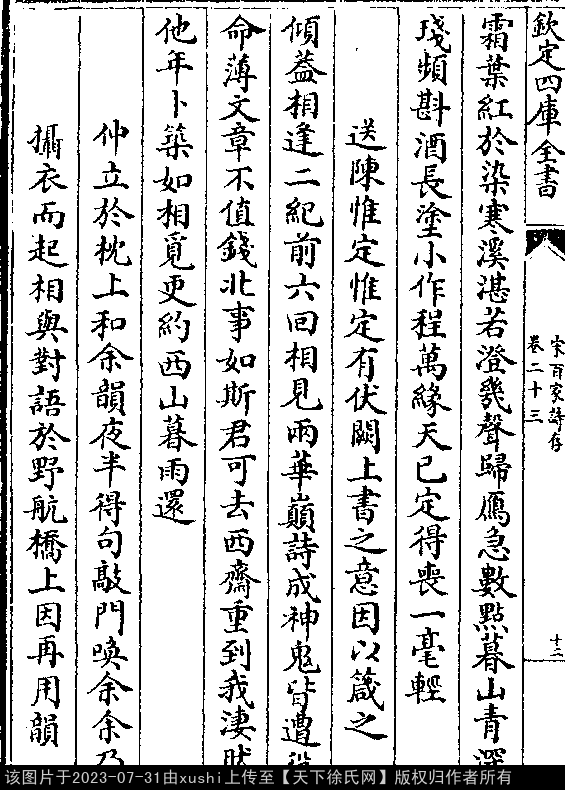 欽定四庫全書
宋百家詩存
卷二十三
十二
霜葉紅於染寒溪湛若澄幾聲歸鴈急數點暮山青深
琖頻斟酒長塗小作程萬緣天已定得喪一毫輕
送陳惟定惟定有伏闕上書之意因以箴之
傾葢相逢二紀前六回相見兩華巔詩成神鬼皆遭
命薄文章不值錢北事如斯君可去西齋重到我淒
他年卜築如相覓更約西山暮雨還
仲立於枕上和余韻夜半得句敲門喚余余乃
攝衣而起相與對語於野航橋上因再用韻
该图片于2023-07-31由xushi上传至【天下徐氏网】版权归作者所有